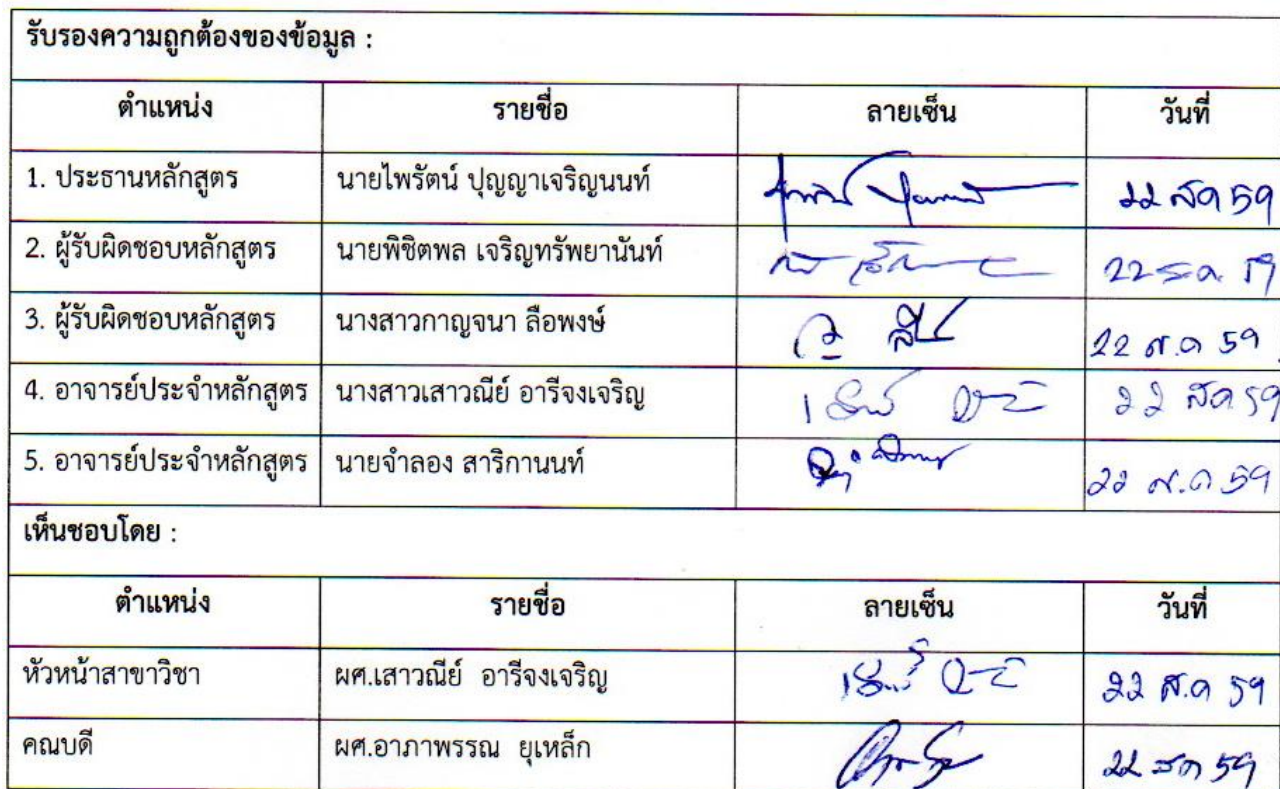 รับรองความถูกต้องของข้อมูล :
ตำแหน่ง รายชื่อ ลายเซ็น วันที่
1. ประธานหลักสูตร นายไพรัตน์ ปุญญาเจริญนนท์ 22 สค 59
2. ผู้รับผิดชอบหลักสูตร นายพิชิตพล เจริญทรัพยานันท์ 22 ส.ค. 59
3. ผู้รับผิดชอบหลักสูตร นางสาวกาญจนา ลือพงษ์ 22 ส.ค 59
4. อาจารย์ประจำหลักสูตร นางสาวเสาวณีย์ อารีจงเจริญ 22 สค 59
5. อาจารย์ประจำหลักสูตร นายจำลอง สาริกานนท์ 22 ส.ค 59
เห็นชอบโดย :
ตำแหน่ง รายชื่อ ลายเซ็น วันที่
หัวหน้าสาขาวิชา ผศ.เสาวณีย์ อารีจงเจริญ 22 ส.ค 59
คณบดี ผศ.อาภาพรรณ ยุเหล็ก 22 สค 59